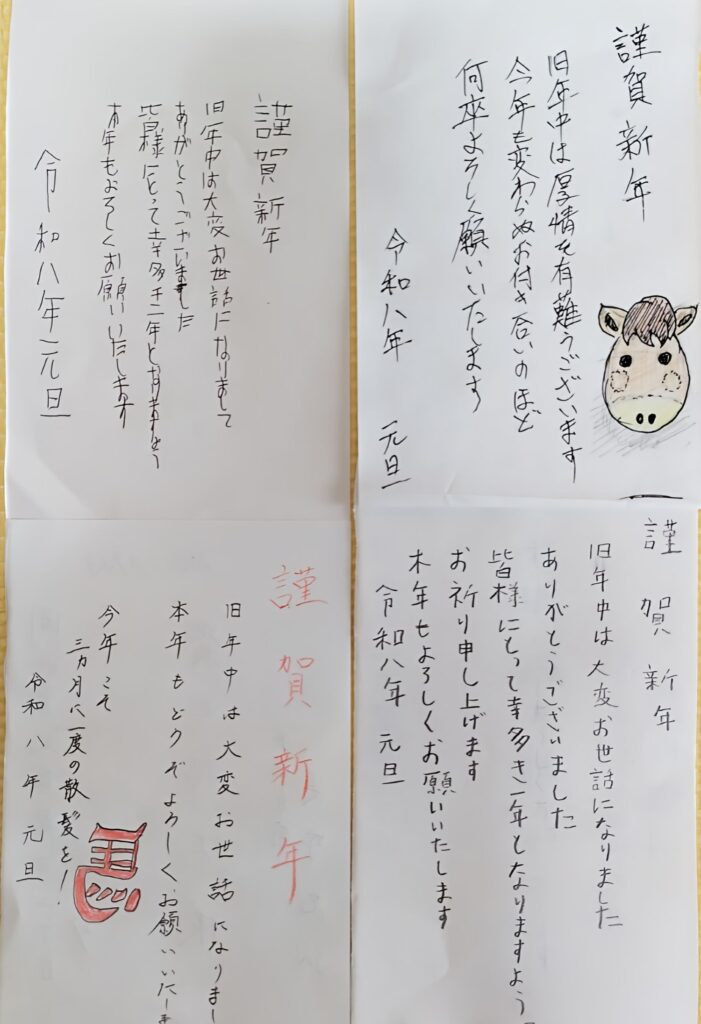 謹賀新年
旧年中は大変お世話になりまして
ありがとうございました
皆様にとって幸多き一年となりますよう
本年もよろしくお願いいたします
令和八年元旦
謹賀新年
旧年中は厚情を有難うございます
今年も変わらぬお付き合いのほど
何卒よろしく願いいたします
令和八年 元旦
謹賀新年
旧年中は大変お世話になりまし
本年もどうぞよろしくお願いいたしま
今年こそ
三カ月に一度の散髪を!
令和八年元旦
謹賀新年
旧年中は大変お世話になりました
ありがとうございました
皆様にとって幸多き一年となりますよう
お祈り申し上げます
本年もよろしくお願いいたします
令和八年 元旦